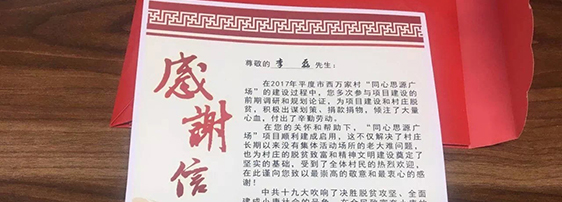 感謝信
尊敬的 李磊 先生：
在2017年平度市西万家村“同心思源广
场”的建设过程中，您多次参与项目建设的
前期调研和规划论证，为项目建设和村庄脱
贫，积极出谋划策、捐款捐物，倾注了大量
心血，付出了辛勤劳动。
在您的关怀和帮助下，“同心思源广
场”项目顺利建成启用，这不仅解决了村庄
长期以来没有集体活动场所的老大难问题，
也为村庄的脱贫致富和精神文明建设奠定了
坚实的基础，受到了全体村民的热烈欢迎，
在此谨向您致以最崇高的敬意和最衷心的
感谢！
中共十九大吹响了决胜脱贫攻坚、全面